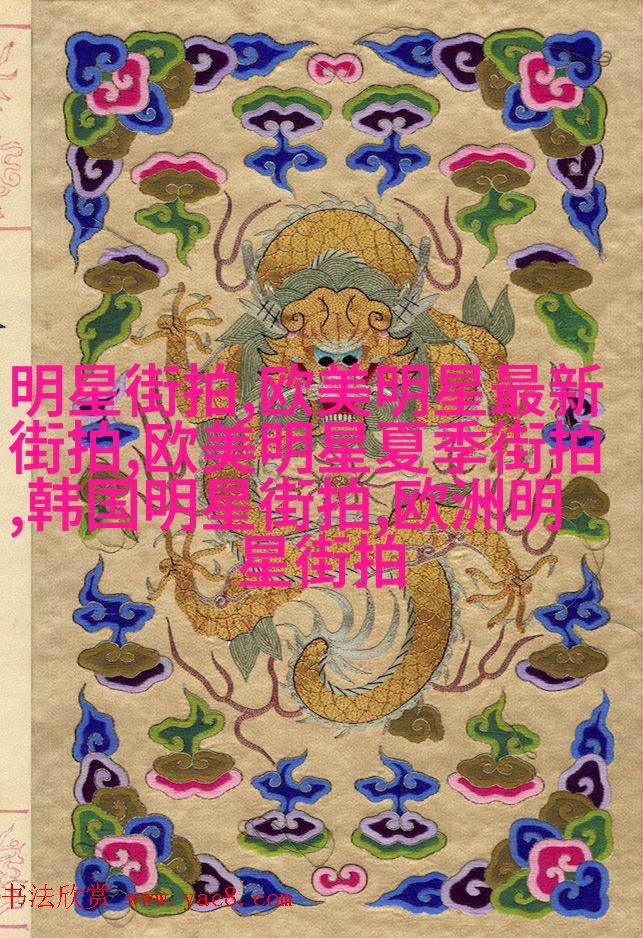 明星街拍,欧美明星最新
街拍,欧美明星夏季街拍
,韩国明星街拍,欧洲明
星街拍
书法欣赏 www.yac8.com